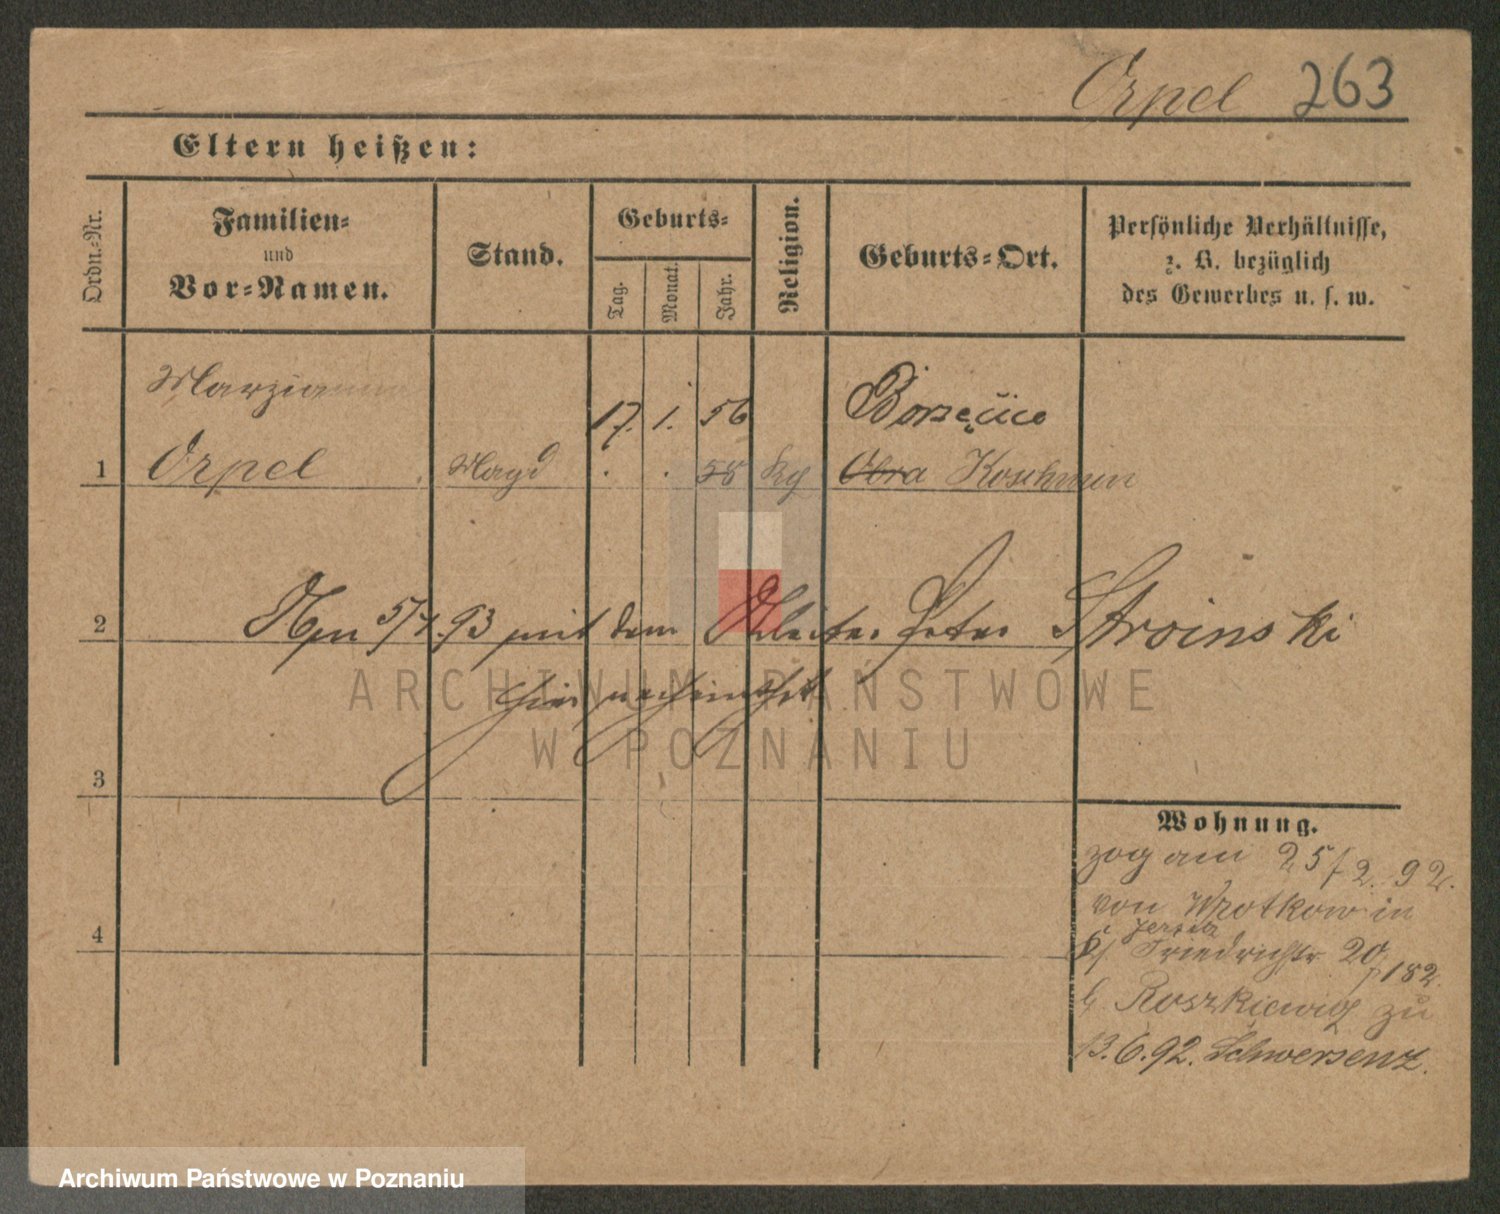 Orpel 263
Eltern heißen:
Ordn.-Nr.
Familien-
und
Vor-Namen.
Stand.
Geburts-
Tag.
Monat.
Jahr.
Religion.
Geburts-Ort.
Persönliche Verhältnisse,
z. B. bezüglich
des Gewerbes u. s. w.
Marzianna
17. 1. 56 Borzęcice
1 Orpel Magd 58 kg Obra Koschmin
2 Am 5/7.93 mit dem Arbeiter Peter Stroinski
hier
ARCHIWUM PAŃSTWOWE
W POZNANIU
3
Wohnung.
zog am 25/2. 92.
von Wrotkow in
Jersitz
4 Friedrichstr 20
p182
b. Roszkiewicz zu
13.6.92. Schwersenz.
Archiwum Państwowe w Poznaniu